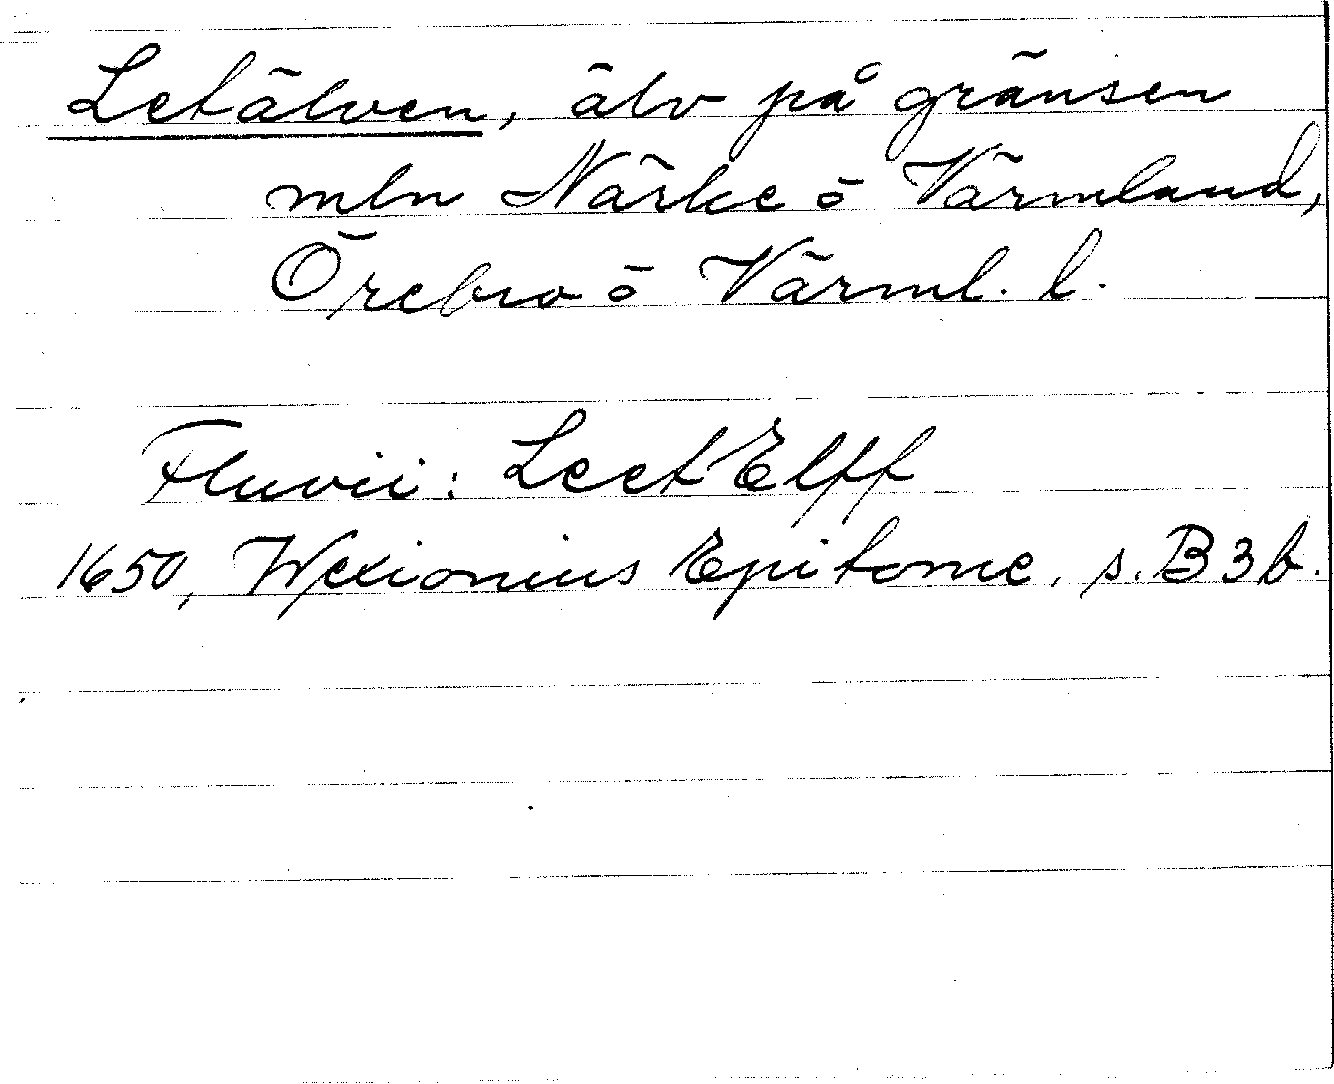 Letälven, älv på gränsen
mln Närke o Värmland,
Örebro o Värml. l.
Fluvii: Leet Elff
1650, Wexionius Epitome, s. B3b.